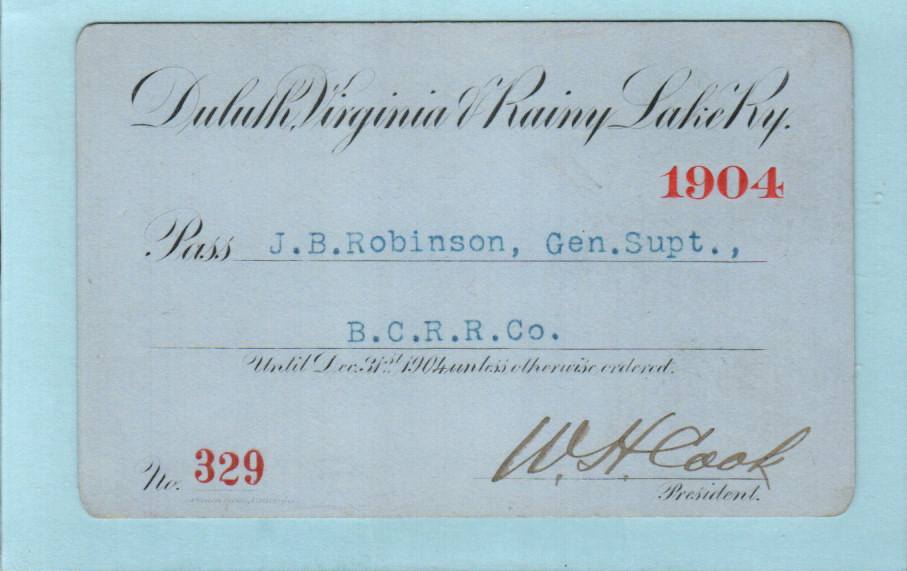 Duluth, Virginia & Rainy Lake Ry.
1904
Pass J.B.Robinson, Gen.Supt.,
B.C.R.R.Co.
Until Dec. 31st 1904 unless otherwise ordered.
W. H. Cook
No. 329
President.